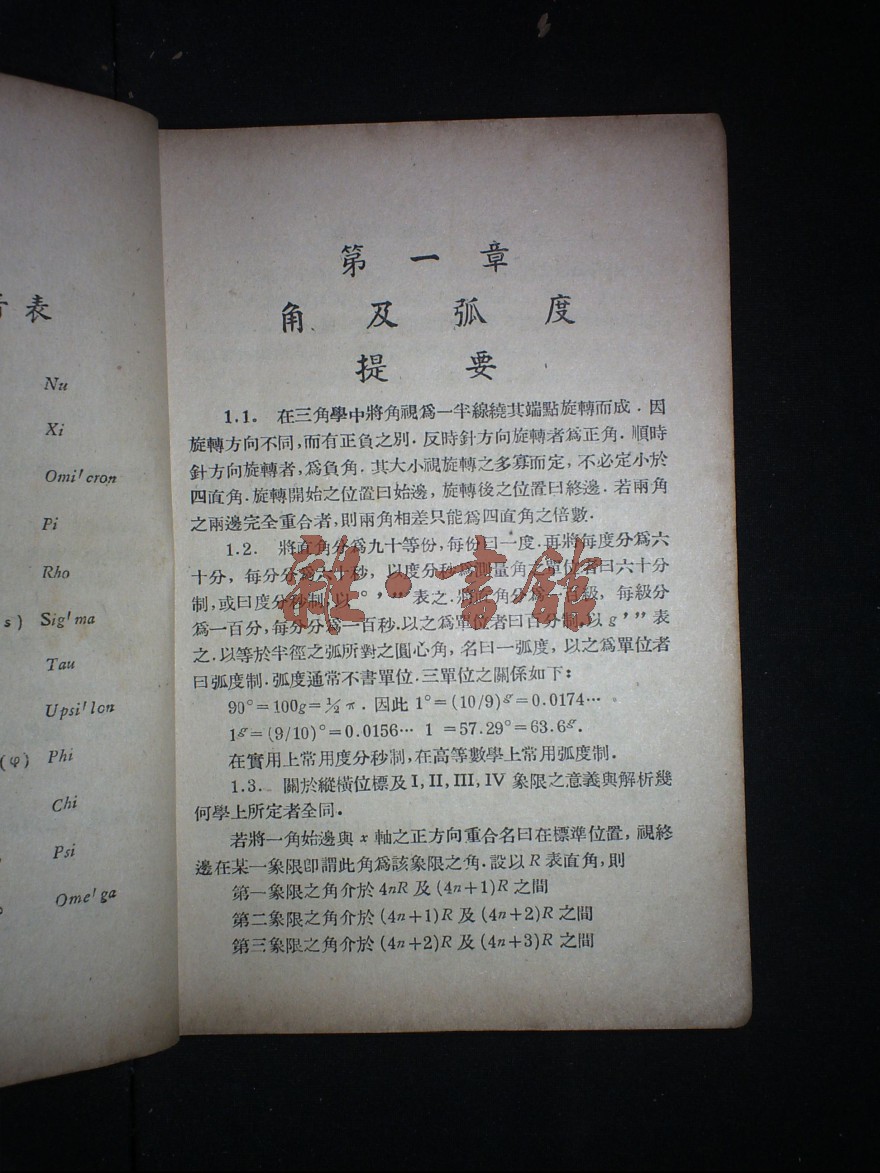 表
Nu
Xi
Omi'cron
Pi
Rho
s) Sig'ma
Tau
Upsi'lon
(φ) Phi
Chi
Psi
Ome'ga
第一章
角及弧度
提要
1.1. 在三角學中將角視爲一半線繞其端點旋轉而成．因
旋轉方向不同，而有正負之別．反時針方向旋轉者爲正角．順時
針方向旋轉者，爲負角．其大小視旋轉之多寡而定，不必定小於
四直角．旋轉開始之位置曰始邊，旋轉後之位置曰終邊．若兩角
之兩邊完全重合者，則兩角相差只能爲四直角之倍數．
1.2. 將直角分爲九十等份，每份曰一度．再將每度分爲六
十分，每分分爲六十秒，以度分秒爲測量角之單位者曰六十分
制，或曰度分秒制，以 ° ' " 表之．將直角分爲一百級，每級分
爲一百分，每分分爲一百秒，以之爲單位者曰百分制，以 g ' " 表
之．以等於半徑之弧所對之圓心角，名曰一弧度，以之爲單位者
曰弧度制．弧度通常不書單位．三單位之關係如下：
90°=100g=½ π．因此 1°=(10/9)g=0.0174…。
1g=(9/10)°=0.0156… 1 =57.29°=63.6g．
在實用上常用度分秒制，在高等數學上常用弧度制．
1.3. 關於縱橫位標及 I, II, III, IV 象限之意義與解析幾
何學上所定者全同。
若將一角始邊與 x 軸之正方向重合名曰在標準位置，視終
邊在某一象限卽謂此角爲該象限之角．設以 R 表直角，則
第一象限之角介於 4nR 及 (4n+1)R 之間
第二象限之角介於 (4n+1)R 及 (4n+2)R 之間
第三象限之角介於 (4n+2)R 及 (4n+3)R 之間
雜·書館